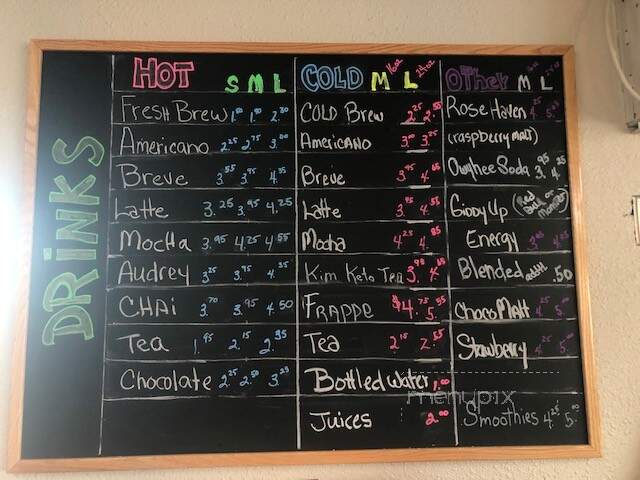 DRINKS
HOT S M L
Fresh Brew 1.00 2.00
Americano 2.25 2.75 3.00
Breve 3.55 3.95 4.35
Latte 3.25 3.95 4.25
Mocha 3.95 4.25 4.55
Audrey 3.25 3.75 4.35
CHAi 3.70 3.95 4.50
Tea 1.95 2.15 2.35
Chocolate 2.25 2.50 3.25
COLD M 16oz L 24oz
COLD Brew 2.25 2.55
Americano 3.00 3.25
Breve 3.95 4.65
Latte 3.95 4.55
Mocha 4.25 4.85
Kim Keto Tea 3.95 4.65
FRAPPE $4.75 5.55
Tea 2.15 2.55
Bottled Water 1.00
Juices 2.00
Other M 16oz L 24oz
Rose Haven 4.25
(raspberry MALT)
Owyhee Soda 3.95 4.25
Giddy Up (Red Bull or Monster)
Energy
Blended addtl .50
Choco Malt 4.25 5.00
Strawberry 4.25 5.00
Smoothies 4.25 5.00
menupix